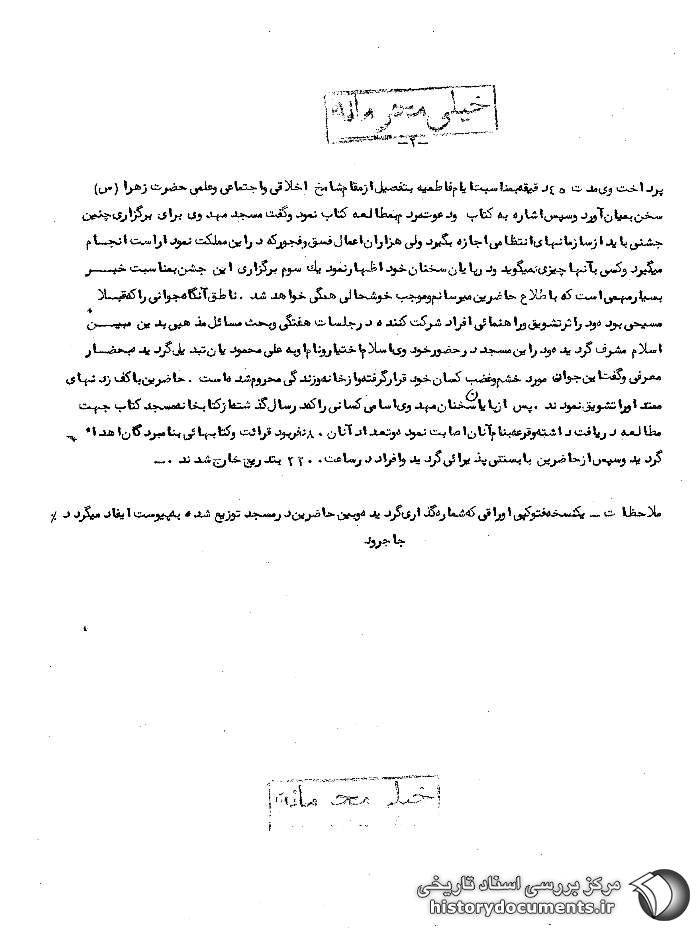 خیلی محرمانه
-۲-
پرداخت وی مدت ۴۵ دقیقه بمناسبت ایام فاطمیه بتفصیل از مقام شامخ اخلاقی و اجتماعی و علمی حضرت زهرا (س)
سخن بمیان آورد و سپس اشاره به کتاب و دعوت مردم بمطالعه کتاب نمود و گفت مسجد مهدوی برای برگزاری چنین
جشنی باید از سازمانهای انتظامی اجازه بگیرد ولی هزاران اعمال فسق و فجور که در این مملکت نمود ار است انجام
میگیرد و کسی بآنها چیزی نمیگوید و در پایان سخنان خود اظهار نمود یک سوم برگزاری این جشن بمناسبت خبر
بسیار مهمی است که باطلاع حاضرین میرسانم و موجب خوشحالی همگی خواهد شد . ناطق آنگاه جوانی را که قبلا
مسیحی بوده و در اثر تشویق و راهنمائی افراد شرکت کننده در جلسات هفتگی و بحث مسائل مذهبی بدین مبین
اسلام مشرف گردیده و در این مسجد در حضور خود وی اسلام اختیار و نام او به علی محمودیان تبدیل گردیده بحضار
معرفی و گفت این جوان مورد خشم و غضب کسان خود قرار گرفته و از خانه و زندگی محروم شده است . حاضرین با کف زدنهای
ممتد او را تشویق نمودند . پس از پایان سخنان مهدوی اسامی کسانی را که در سال گذشته از کتابخانه مسجد کتاب جهت
مطالعه دریافت داشته و قرعه بنام آنان اصابت نموده و تعداد آنان ۸۰ نفر بود قرائت و کتابهائی بنامبردگان اهداء
گردید و سپس از حاضرین با بستنی پذیرائی گردید و افراد در ساعت ۲۲۰۰ بتدریج خارج شدند . ــ
ملاحظات ــ یک نسخه فتوکپی اوراقی که شماره گذاری گردیده و بین حاضرین در مسجد توزیع شده به پیوست ایفاد میگردد ٪
جاجرود
خیلی محرمانه
مرکز بررسی اسناد تاریخی
historydocuments.ir